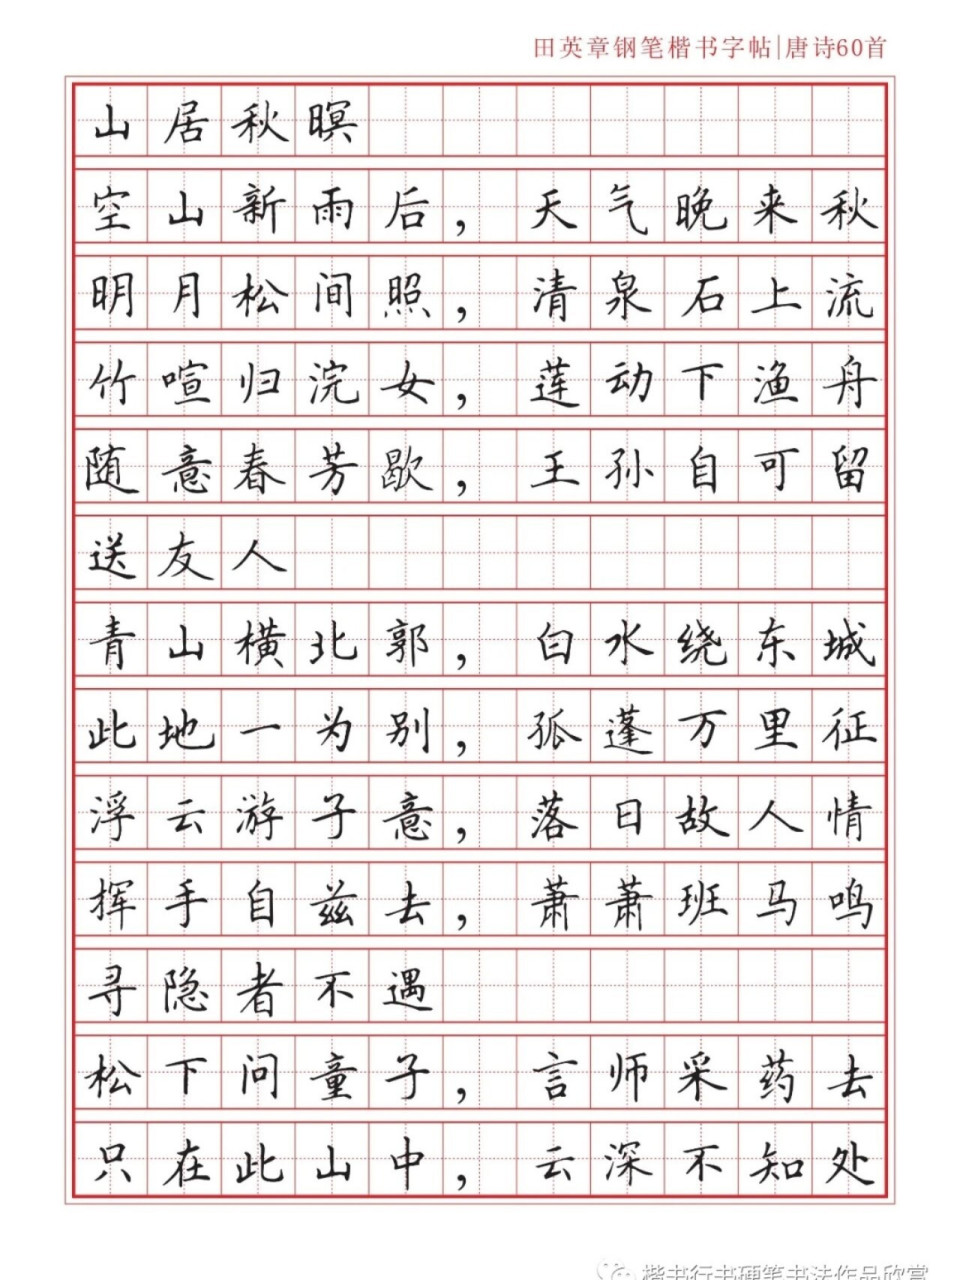 田英章钢笔楷书字帖|唐诗60首
山居秋暝
空山新雨后，天气晚来秋
明月松间照，清泉石上流
竹喧归浣女，莲动下渔舟
随意春芳歇，王孙自可留
送友人
青山横北郭，白水绕东城
此地一为别，孤蓬万里征
浮云游子意，落日故人情
挥手自兹去，萧萧班马鸣
寻隐者不遇
松下问童子，言师采药去
只在此山中，云深不知处
楷书行书硬笔书法作品欣赏